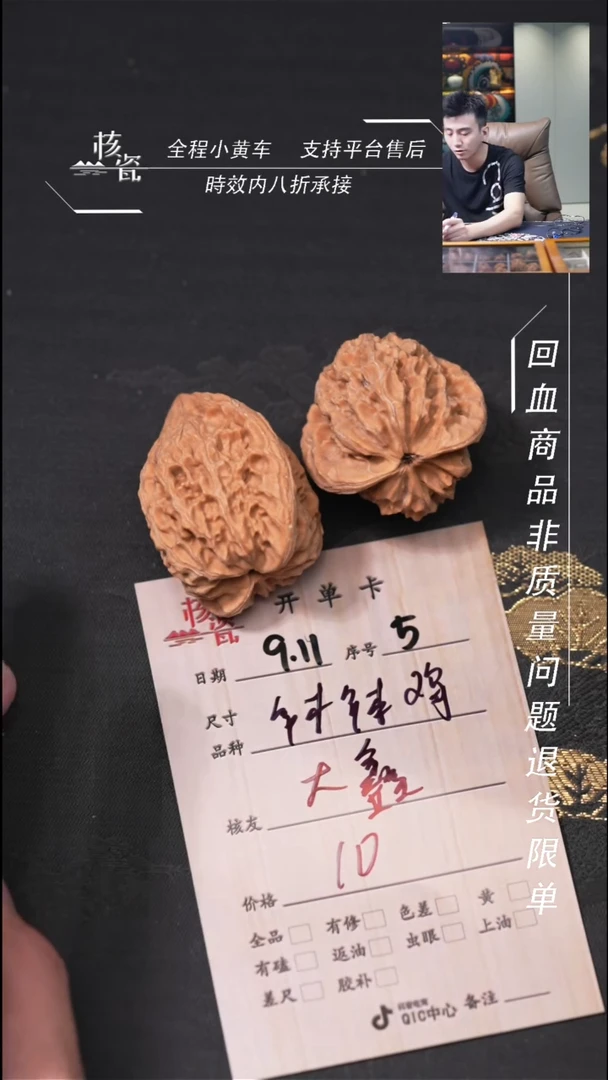 核瓷
全程小黄车 支持平台售后
時效内八折承接
回血商品非质量问题退货限单
核瓷
开单卡
日期 9.11 序号 5
尺寸
品种
大鑫
核友
10
价格
全品 有修 色差 黄
有磕 返油 虫眼 上油
差尺 胶补
抖音电商
QIC中心 备注